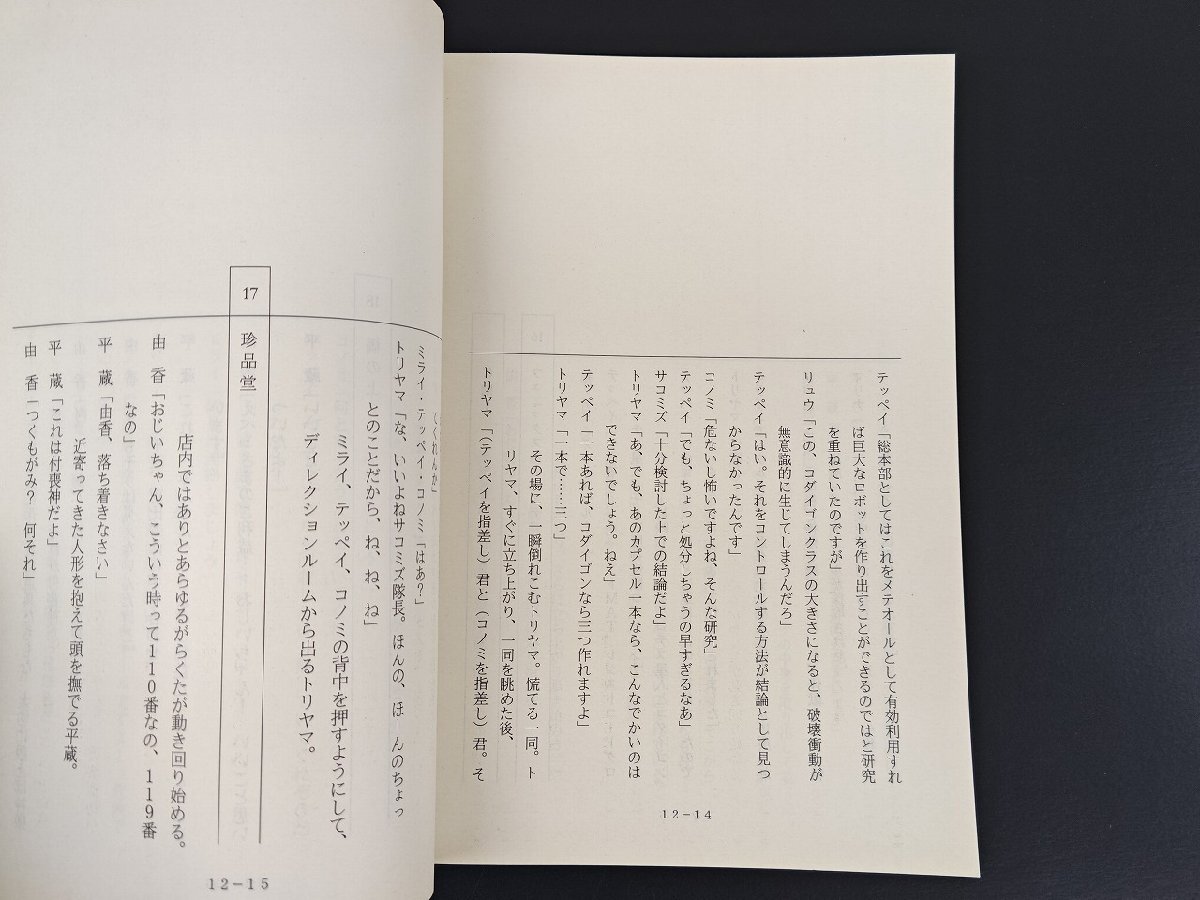 テッペイ「総本部としてはこれをメテオールとして有効利用すれ
ば巨大なロボットを作り出すことができるのではと研究
を重ねていたのですが」
リュウ「この、コダイゴンクラスの大きさになると、破壊衝動が
無意識的に生じてしまうんだろ」
テッペイ「はい。それをコントロールする方法が結論として見つ
からなかったんです」
コノミ「危ないし怖いですよね、そんな研究」
テッペイ「でも、ちょっと処分しちゃうの早すぎるなあ」
サコミズ「十分検討した上での結論だよ」
トリヤマ「あ、でも、あのカプセル一本なら、こんなでかいのは
できないでしょう。ねえ」
テッペイ「一本あれば、コダイゴンなら三つ作れますよ」
トリヤマ「一本で……三つ」
その場に、一瞬倒れこむトリヤマ。慌てる一同。ト
リヤマ、すぐに立ち上がり、一同を眺めた後、
トリヤマ「(テッペイを指差し)君と(コノミを指差し)君。そ
12-14
してくれんか」
ミライ・テッペイ・コノミ「はあ?」
トリヤマ「な、いいよねサコミズ隊長。ほんの、ほ んのちょっ
とのことだから、ね、ね、ね」
ミライ、テッペイ、コノミの背中を押すようにして、
ディレクションルームから出るトリヤマ。
17 珍品堂
店内ではありとあらゆるがらくたが動き回り始める。
由 香「おじいちゃん、こういう時って110番なの、119番
なの」
平 蔵「由香、落ち着きなさい」
近寄ってきた人形を抱えて頭を撫でる平蔵。
平 蔵「これは付喪神だよ」
由 香「つくもがみ? 何それ」
12-15